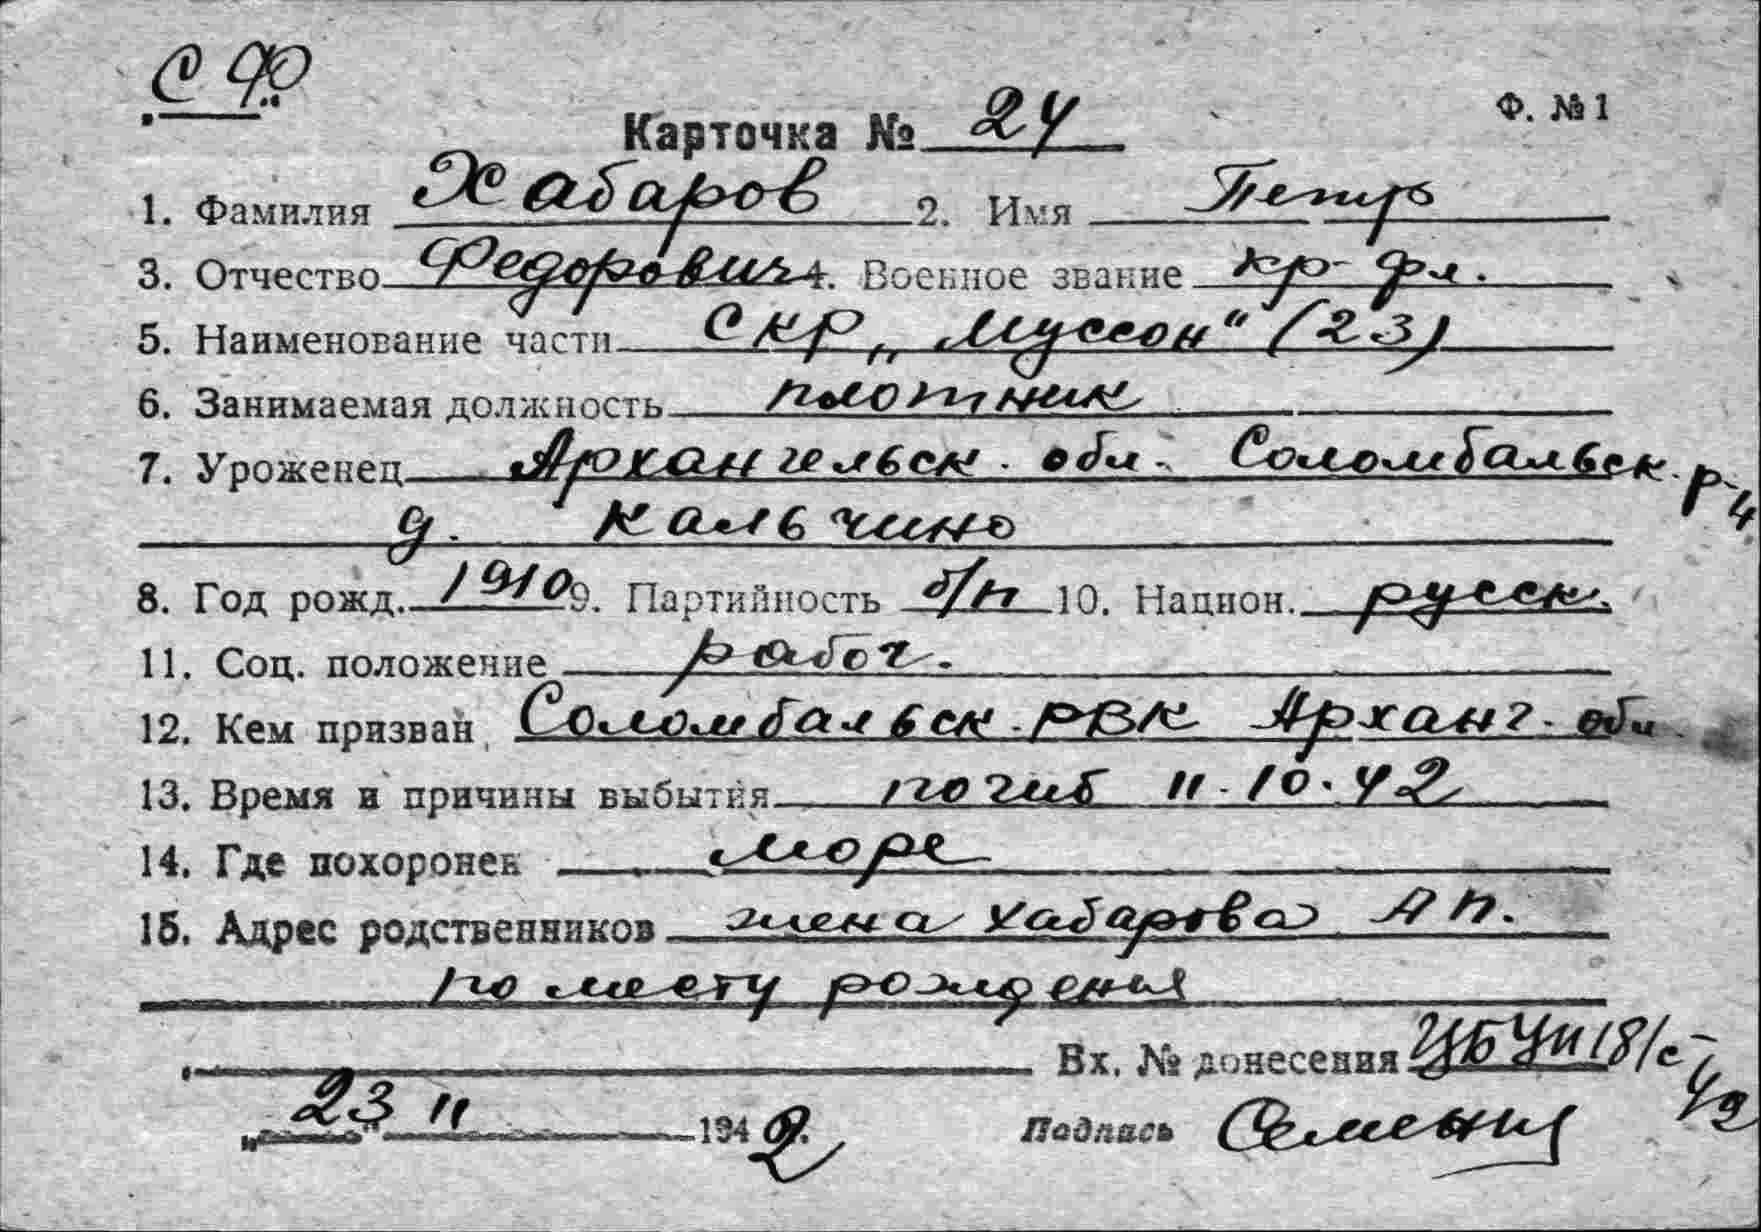 СФ
Ф. №1
Карточка № 24
1. Фамилия Хабаров 2. Имя Петр
3. Отчество Федорович 4. Военное звание кр-фл.
5. Наименование части СКР „Муссон" (23)
6. Занимаемая должность плотник
7. Уроженец Архангельск. обл. Соломбальск. р-н
д. Кальчино
8. Год рожд. 1910 9. Партийность б/п 10. Национ. русск.
11. Соц. положение рабоч.
12. Кем призван Соломбальск. РВК Арханг. обл
13. Время и причины выбытия погиб 11.10.42
14. Где похоронен море
15. Адрес родственников жена Хабарова А П.
по месту рождения
Вх. № донесения 18/с-42
„23" 11 1942. Подпись